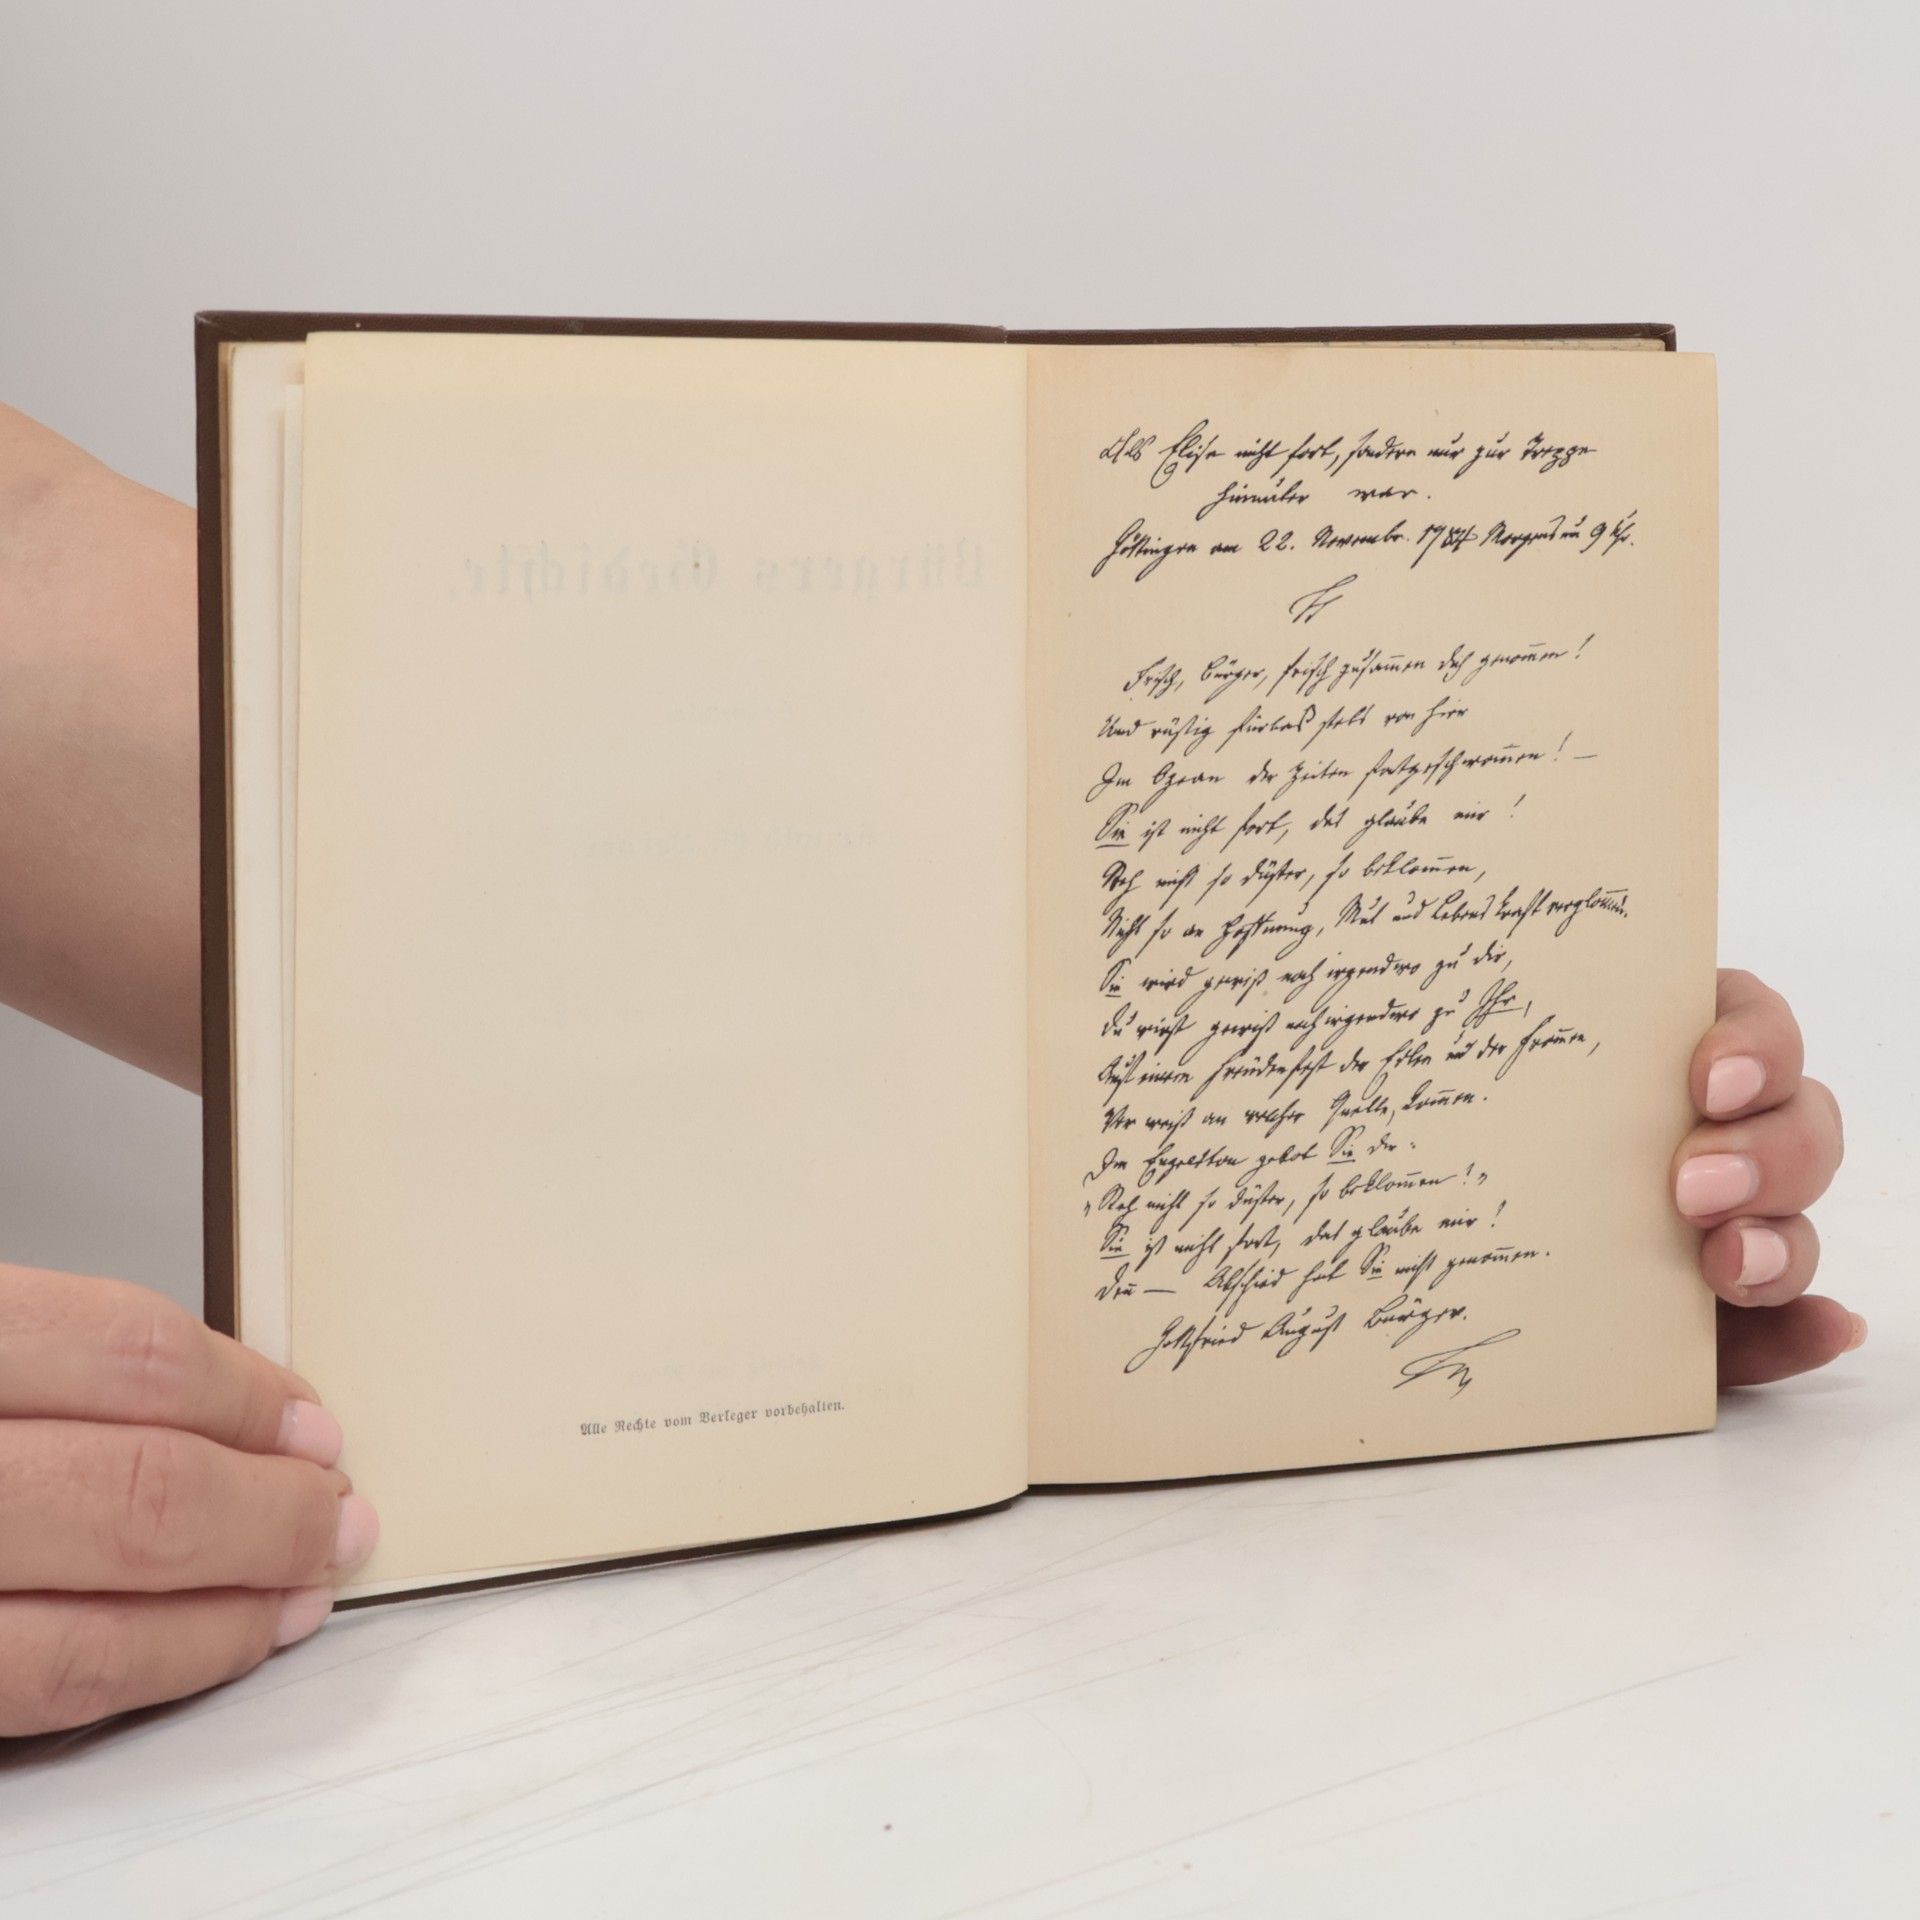 Bürgers Gedichte.
Alle Rechte vom Verleger vorbehalten.
Als Elise nicht fort, sondern nur zur Treppe
hinunter war.
Göttingen am 22. Novembr. 1784 Morgens um 9 Uhr.
Frisch, Bürger, frisch zusam̅en dich genom̅en!
Und rüstig fürbaß stets von hier
Im Ozean der Zeiten fortgeschwom̅en! —
Sie ist nicht fort, das glaube mir!
Steh nicht so düster, so beklom̅en,
Nicht so an Hoffnung, Mut und Lebenskraft verglom̅en.
Sie wird gewiß noch irgendwo zu dir,
Du wirst gewiß noch irgendwo zu Ihr,
Auf einem Freudenfest der Edlen und der From̅en,
Wer weiß an welcher Quelle, kom̅en.
Im Engelston gebot Sie dir:
„Steh nicht so düster, so beklom̅en!"
Sie ist nicht fort, das glaube mir!
Den̅ — Abschied hat Sie nicht genom̅en.
Gottfried August Bürger.